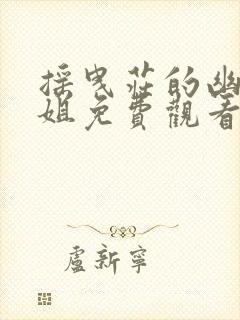 採曳莊的幽
姐免費觀看
盧新寧